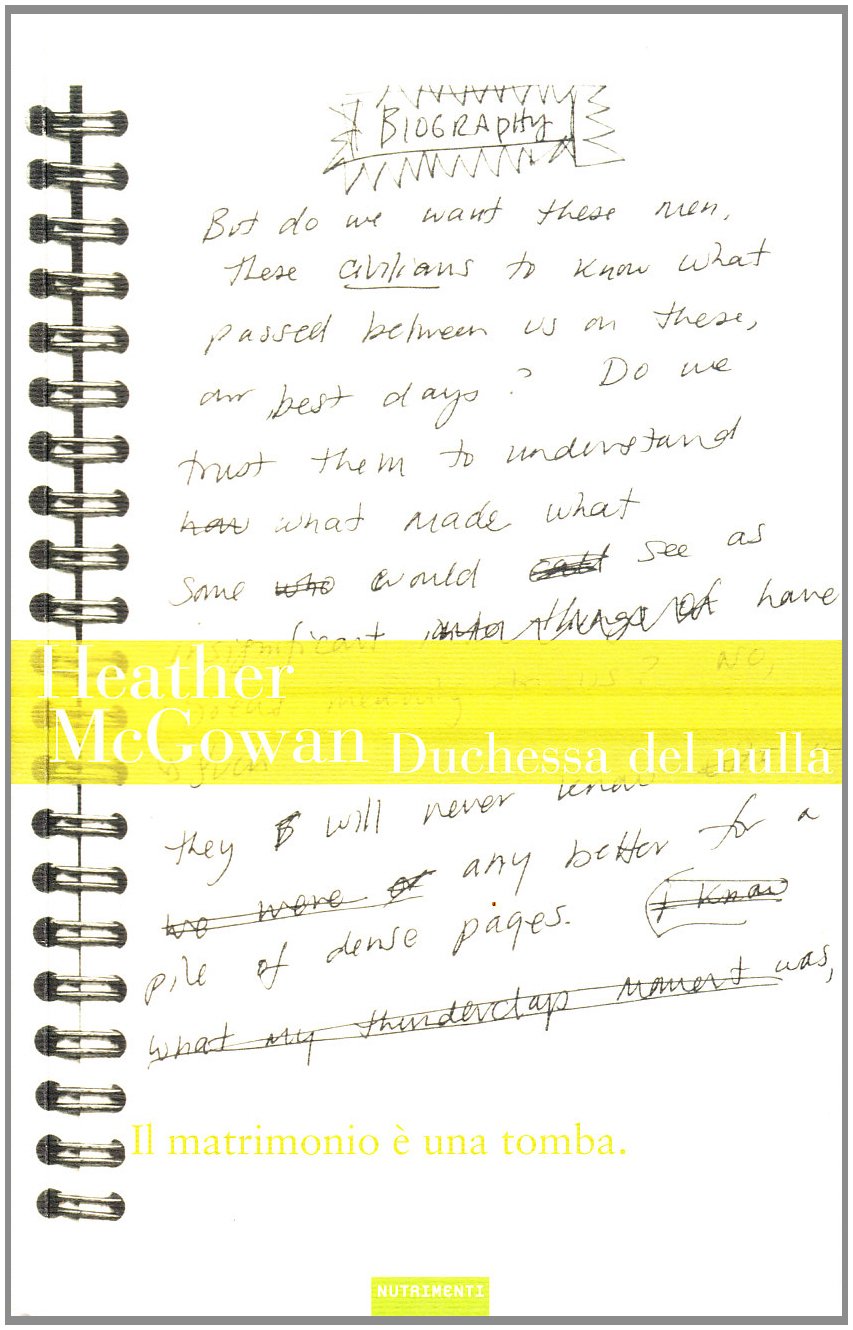 BIOGRAPHY
But do we want these men,
these civilians to know what
passed between us on these,
our best days? Do we
trust them to understand
how what made what
some who would call see as
insignificant things of have
great meaning to us? No,
Heather
McGowan Duchessa del nulla
they will never know
we were or any better for a
pile of dense pages. I know
what my thunderclap moment was,
Il matrimonio è una tomba.
NUTRIMENTI